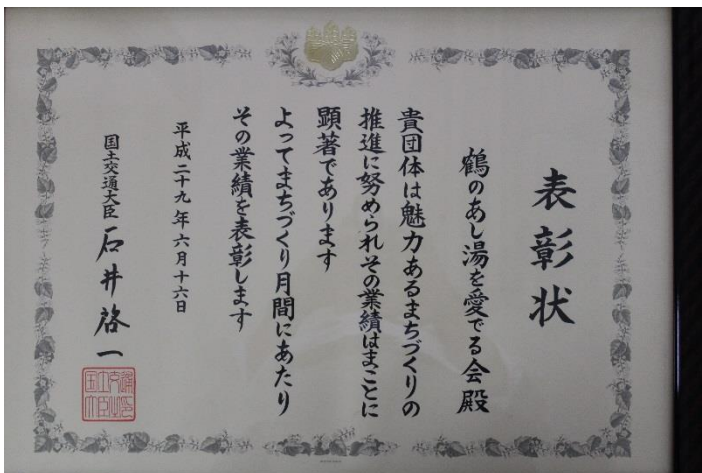 表彰状
鶴のあし湯を愛でる会殿
貴団体は魅力あるまちづくりの
推進に努められその業績はまことに
顕著であります
よってまちづくり月間にあたり
その業績を表彰します
平成二十九年六月十六日
国土交通大臣 石井啓一